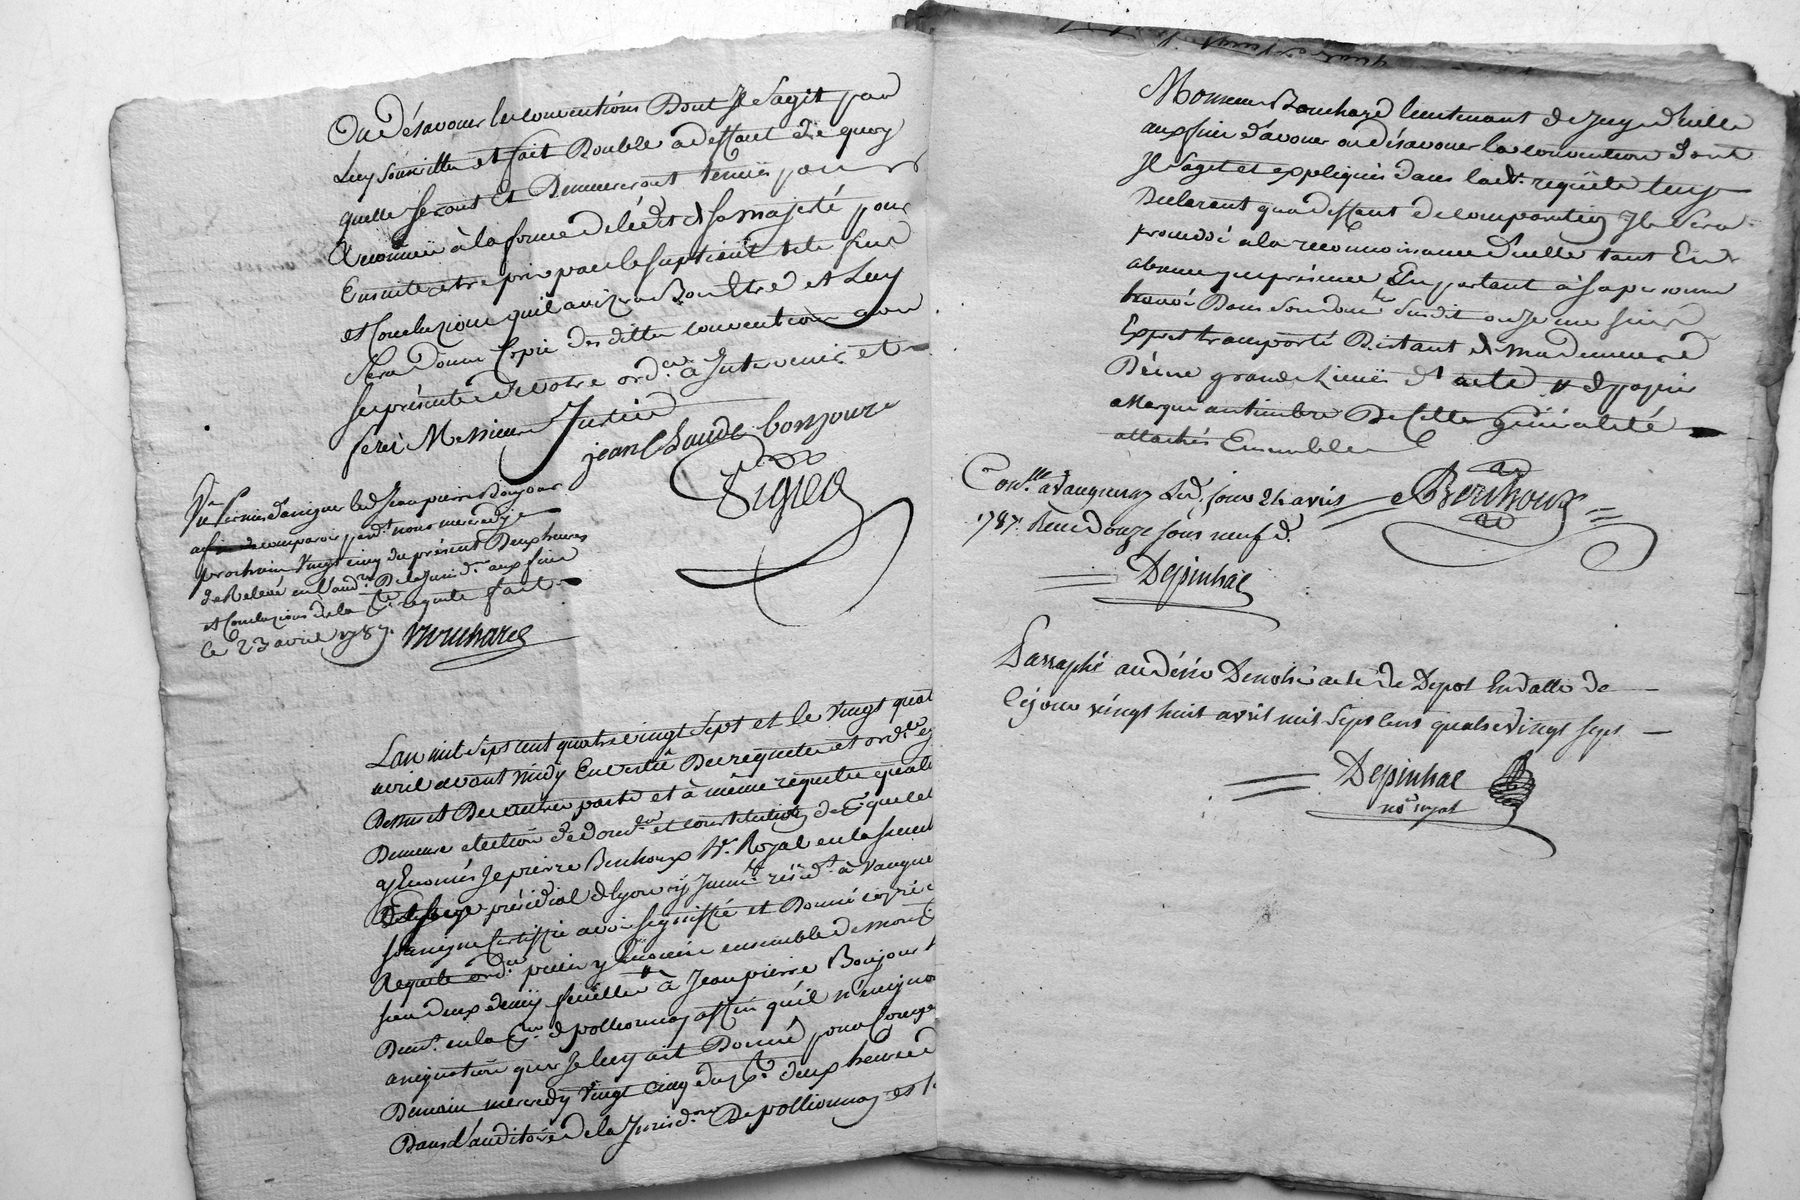 Ou désavouer les conventions Dont Jl Sagit par
Luy souscrittes et fait Double a deffaut de quoy
quelle seront et Demeureront tenuës pour
Reconnuë à la forme de lédit de sa majesté pour
Ensuite etre pris par le supliant tele fins
et Conclusions quil avisera Bon Etre et Luy
sera Donné Copie des dittes conventions avec
les présentes de votre ord.ce à Intervenir et
ferés Messieurs Justice
jean Claude bonjour
Vu Permis d'assigner led Jean pierre Bonjour
a comparoir pard.t nous mercredy
prochain Vingt cinq du présent Deux heures
de Relevé en l'aud.re De la Jurid.on aux fins
et Conclusions de la d.e requete fait
Ce 23 avril 1787. Bouchard
L'an mil sept cent quatre vingt sept et le vingt quat
avril avant midy En vertu Des requete et ord.ce cy
Dessus et Des autres parts et à même requete qualit
Demeure election de dom.le et constitution de
y Enoncés Je pierre Berthoux h.r Royal en la senec
présidial de lyon y Imm.lé rési.dt à Vaugne
soussigné Certiffie avoir signiffié et Donné copie
Requete ord.ce y Enoncée ensemble de mon
sur deux demy feuilles à Jean pierre Bonjour
Dem.t en la p.sse de pollionnay affin qu'il n'en ignor
assignation que Je luy ait Donné pour Compa
Demain mercredy Vingt cinq du p.t deux heures d
Dans l'auditoire de la Jurid.on De pollionnay et
Monsieur Bouchard lieutenant de Juge d'icelle
aux fins d'avouer ou désavouer la convention dont
Jl Sagit et expliquées dans lad.e requête luy
Declarant qu'a deffaut de comparution Jl Sera
procédé a la reconnoissance d'icelle tant En
absence que présence En parlant à sa personne
trouvé Dans Son dom.le Susdit ou Je me suis
Exprès transporté Distant de ma demeure
D'une grande Lieuë d.t acte de papier
a Marque au timbre De Cette généralité
attachés Ensemble
Berthoux
Con.llé a Vaugneray Led. jour 24 avril
1787. Reçu douze sols neuf d.
Depinhac
Parraphé au désir De notre acte de Depot En datte de
Cejour vingt huit avril mil Sept Cent quatre vingt Sept
Depinhac
no.re royal